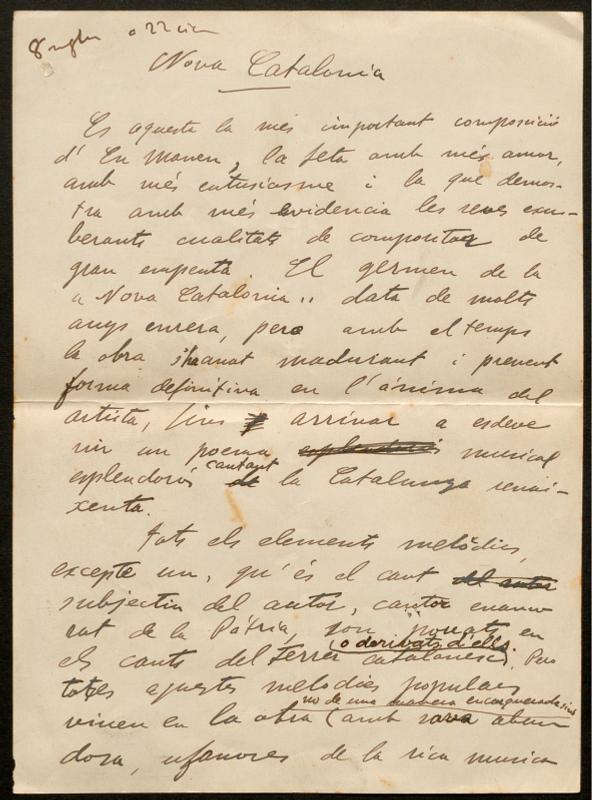 Nova Catalonia
Es aquesta la més important composició
d' En Manen, la feta amb més amor,
amb més entusiasme i la que demos-
tra amb més evidencia les seves exu-
berants cualitats de compositor de
gran empenta. El germen de la
« Nova Catalonia " data de molts
anys enrera, pero amb el temps
la obra s'ha anat madurant i prenent
forma definitiva en l'ánima del
artista, fins arrivar a esdeve
nir un poema esplendorós musical
esplendorós cantant de la Catalunya renai-
xenta.
Tots els elements melòdics,
excepte un, qu' és el cant del autor
subjectiu del autor, cantor enamo
rat de la Pátria, son pouats en
els cants del terrer catalanesc (o derivats d'ells). Pero
totes aquestes melodies populars
no de una manera encarquerada sinó
viuen en la obra (amb sava abun
dosa, ufanores de la rica musica